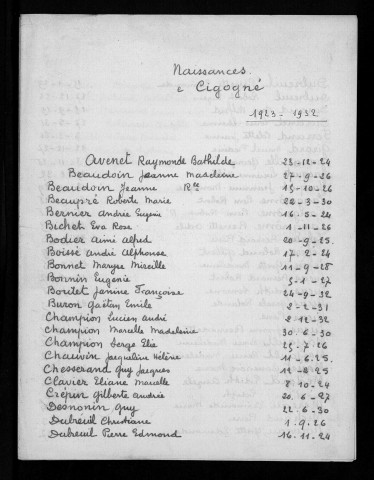 Naissances
à Cigogné
1923-1932
Avenet Raymonde Bathilde 23-12-24
Beaudoin Jeanne Madeleine 27-9-26
Beaudoin Jeanne Rte 15-10-26
Beaupré Roberte Marie 22-3-30
Bernier Andrée Eugénie 16-5-24
Bichet Eva Rose 1-11-26
Bodier Aimé Alfred 20-9-25
Boissé André Alphonse 17-2-24
Bonnet Maryse Mireille 11-9-28
Bonnin Eugénie 5-1-27
Boutet Janine Françoise 24-9-32
Buron Gaëtan Emile 2-2-31
Champion Lucien André 2-12-32
Champion Marcelle Madeleine 30-6-30
Champion Serge Elie 25-7-26
Chauvin Jacqueline Hélène 11-6-25
Chesserand Guy Jacques 12-8-25
Clavier Eliane Marcelle 8-10-24
Crépin Gilberte Andrée 20-6-27
Desnonin Guy 22-6-30
Dubreuil Christiane 1-9-26
Dubreuil Pierre Edmond 16-11-24